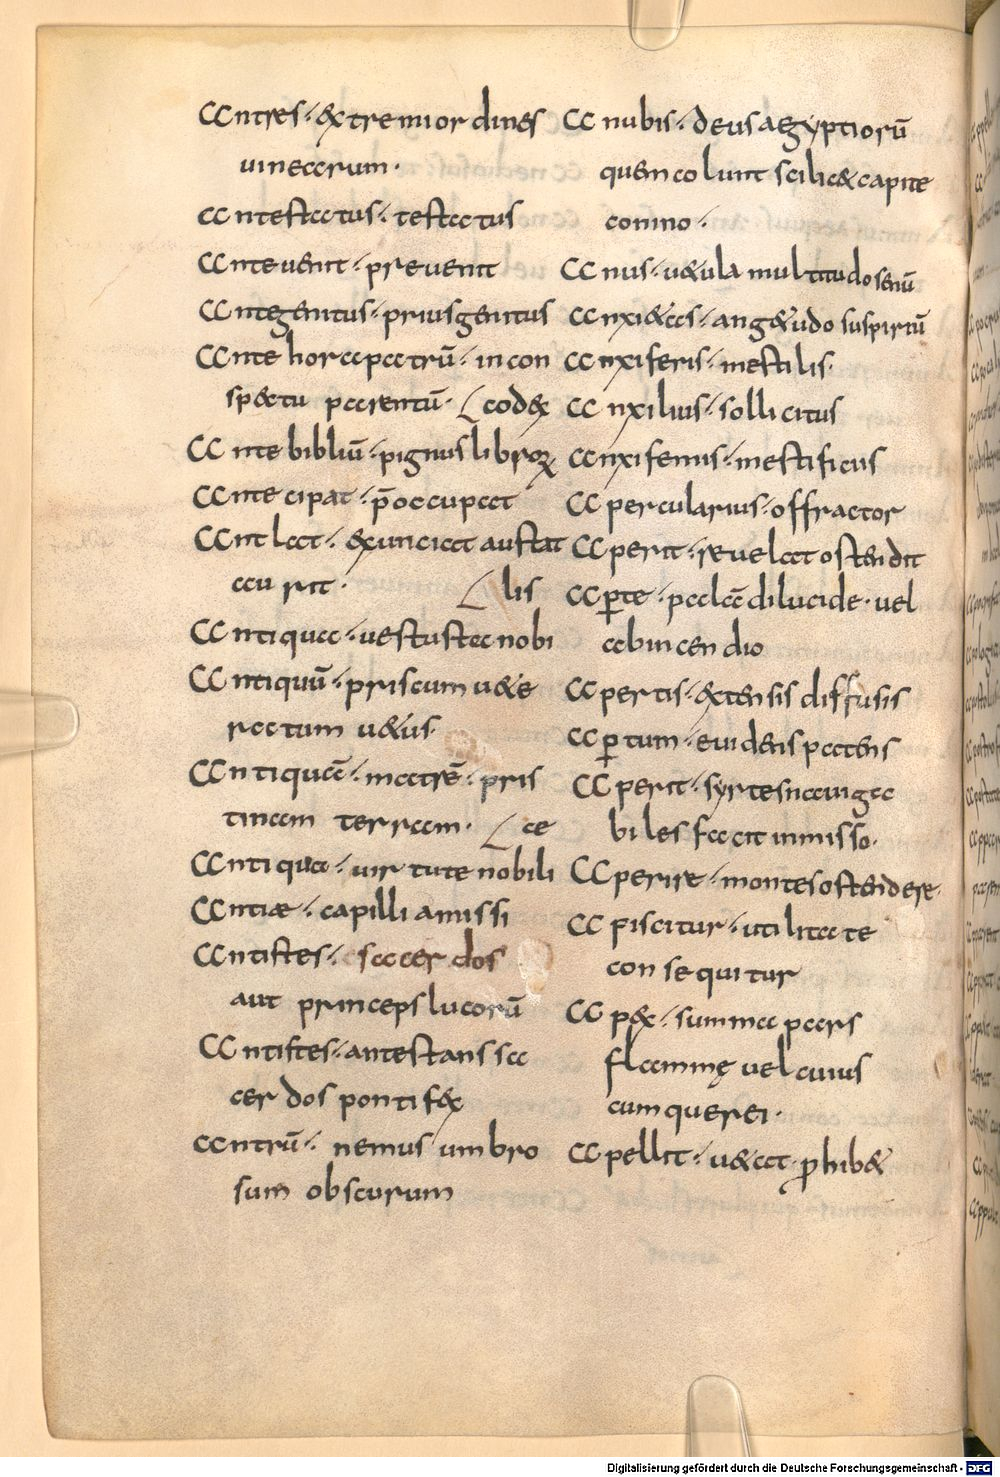 Antes · extremi ordines
uinearum ·
Antestatus · testatus
Anteuenit · preuenit
Antegenitus · priusgenitus
Ante hora patrū · in con
spectu parentū · codex
Ante bibliū · pignus libroꝝ
Antecipat · p̄occupat
Antlat · exunciat austat
aurit · lis
Antiqua · uestusta nobi
Antiquū · priscum uete
ratum uetus ·
Antiquā · matrē · pris
tinam terram · ae
Antiqua · uirtute nobili
Antiae · capilli amissi
Antistes · sacerdos
aut princeps lucorū
Antistes · antestans sa
cerdos pontifex
Antrū · nemus umbro
sum obscurum
Anubis · deus aegyptiorū
quem colunt scilicet capite
canino ·
Anus · uetula multitudo senū
Anxietas · angetudo suspiriū
Anxiferis · mestilis ·
Anxilius · sollicitus
Anxiferus · mestificus
Apercularius · offractor
Aperit · reuelat ostendit
Aꝑte · palā dilucide · uel
ab incendio
Apertis · extensis diffusis
Aꝑtum · euidens patens
Aperit · syrtes nauiga
biles facit inmisso ·
Aperire · montes ostendere ·
Apiscitur · utilitate
consequitur
Apex · summa pars
flammę uel cuius
cumque rei ·
Apellit · uetat ꝓhibet
Digitalisierung gefördert durch die Deutsche Forschungsgemeinschaft - DFG